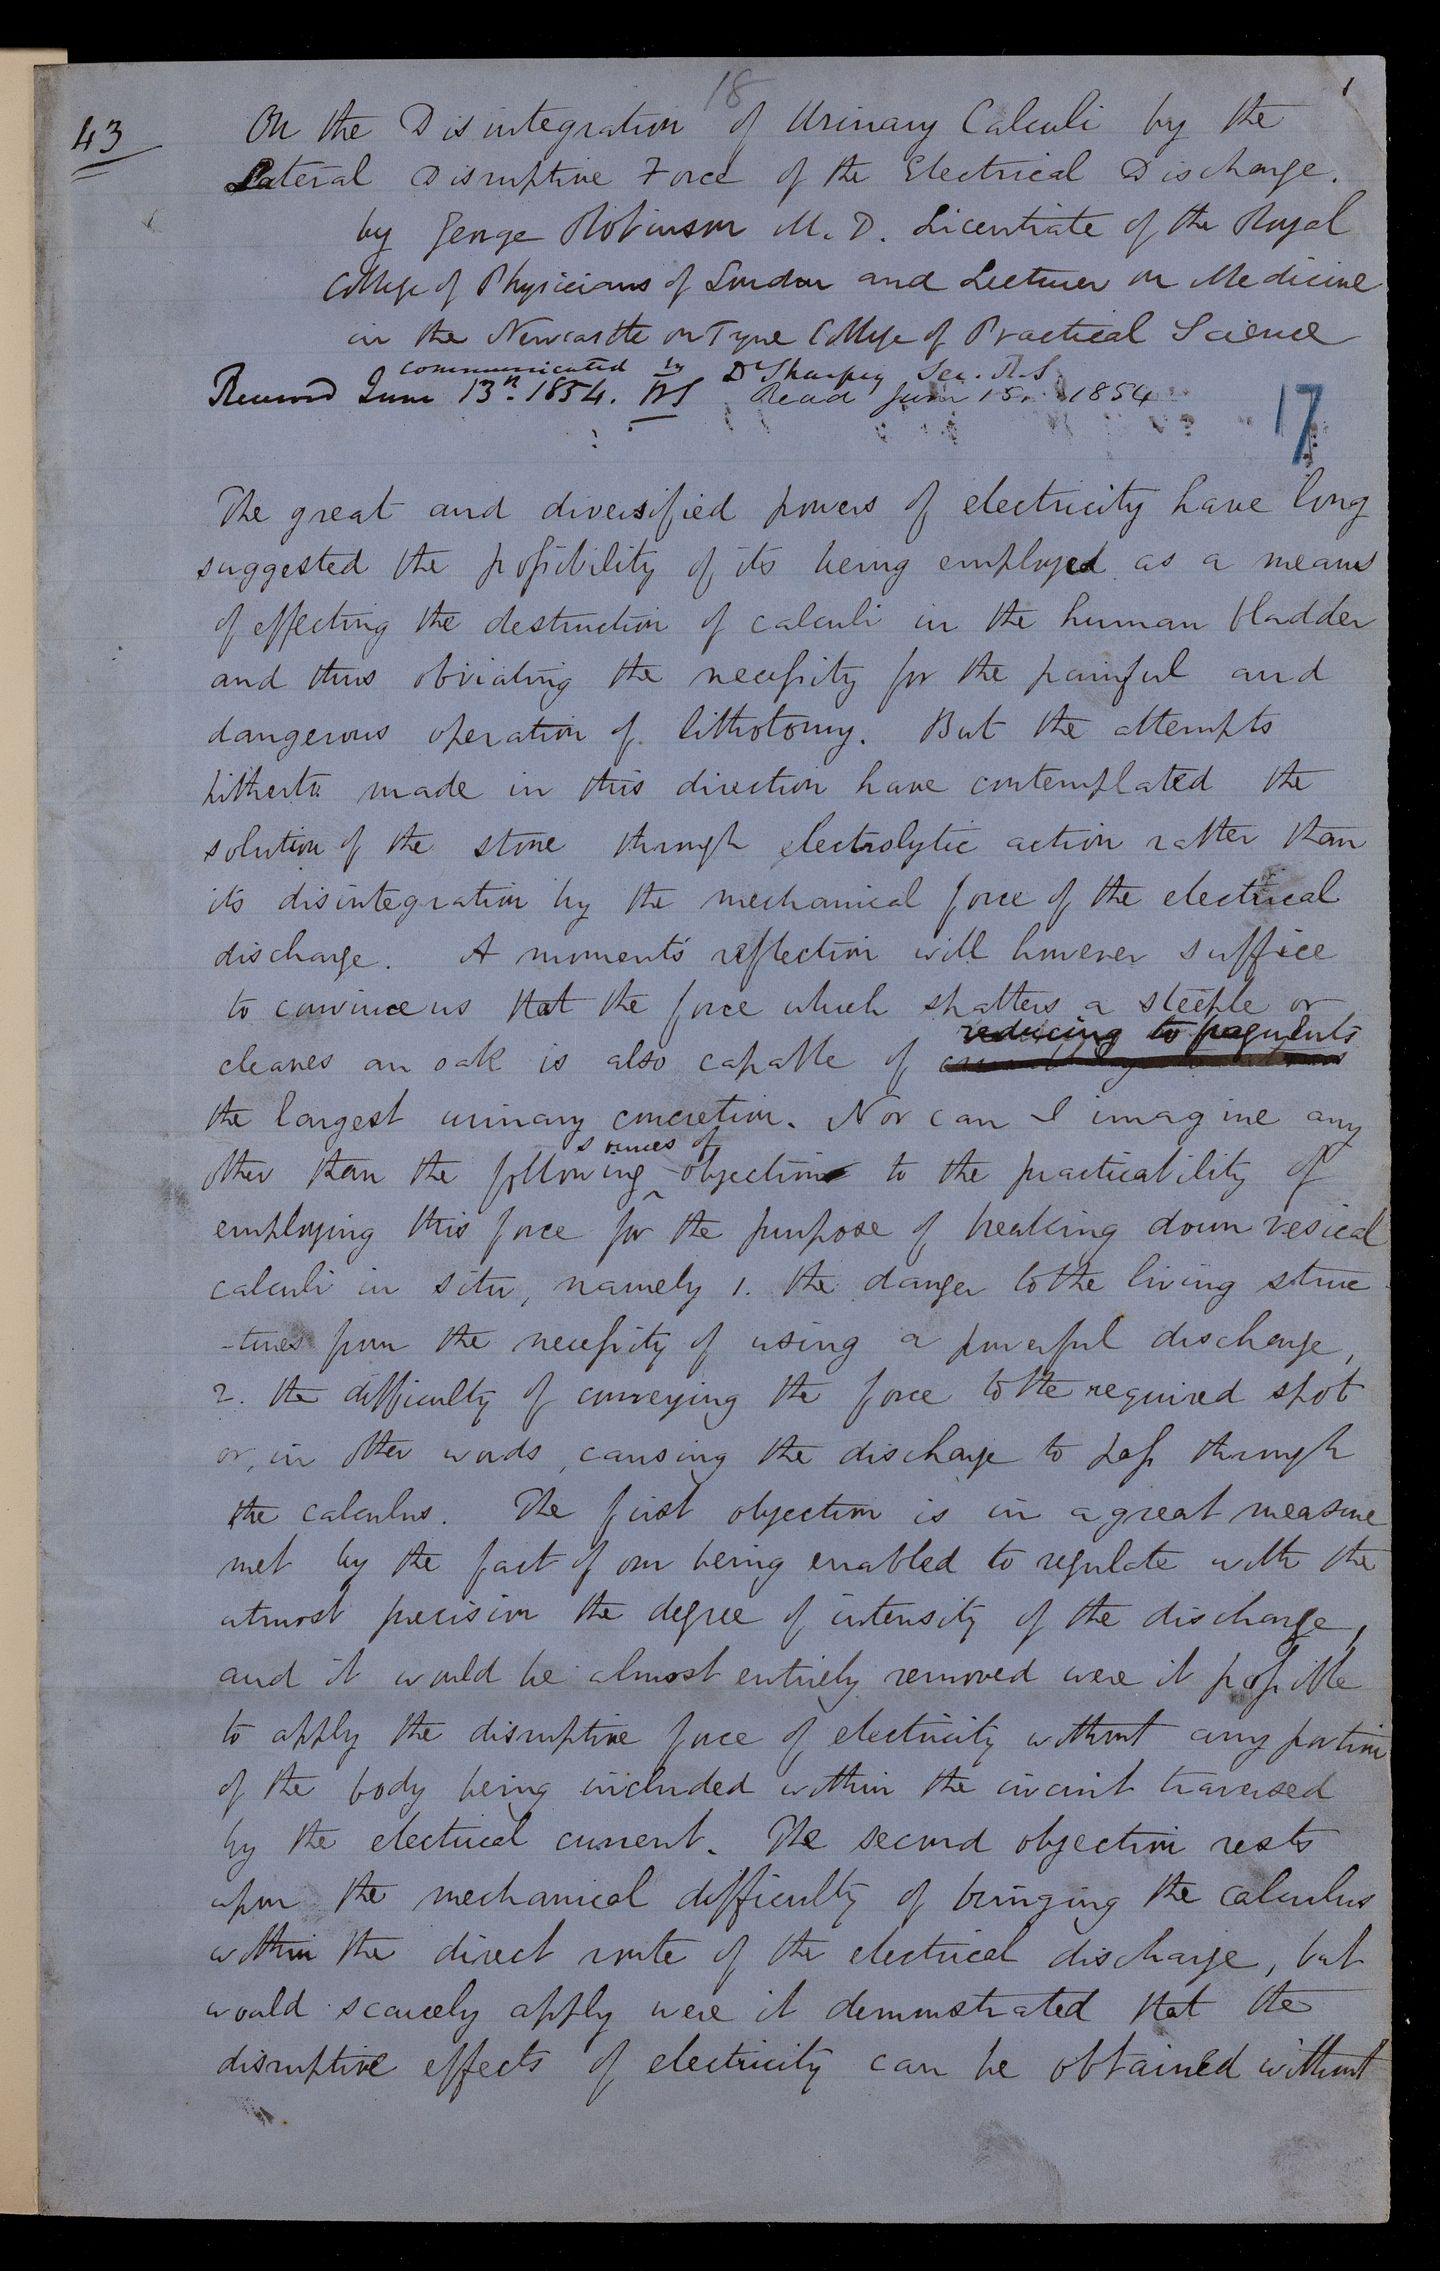 18
1
43
On the Disintegration of Urinary Calculi by the
Lateral Disruptive Force of the Electrical Discharge.
by George Robinson M.D. Licentiate of the Royal
College of Physicians of London and Lecturer on Medicine
in the Newcastle on Tyne College of Practical Science
communicated by Dr Sharpey Sec. R.S.
Received June 13th. 1854. WS Read June 15. 1854
17
The great and diversified powers of electricity have long
suggested the possibility of its being employed as a means
of effecting the destruction of calculi in the human bladder
and thus obviating the necessity for the painful and
dangerous operation of lithotomy. But the attempts
hitherto made in this direction have contemplated the
solution of the stone through electrolytic action rather than
its disintegration by the mechanical force of the electrical
discharge. A moment's reflection will however suffice
to convince us that the force which shatters a steeple or
reducing to fragments
cleaves an oak is also capable of
the largest urinary concretion. Nor can I imagine any
sources of
other than the following objection to the practicability of
employing this force for the purpose of breaking down vesical
calculi in situ, namely 1. the danger to the living struc
-tures from the necessity of using a powerful discharge,
2. the difficulty of conveying the force to the required spot
or, in other words, causing the discharge to pass through
the calculus. The first objection is in a great measure
met by the fact of our being enabled to regulate with the
utmost precision the degree of intensity of the discharge,
and it would be almost entirely removed were it possible
to apply the disruptive force of electricity without any portion
of the body being included within the circuit traversed
by the electrical current. The second objection rests
upon the mechanical difficulty of bringing the calculus
within the direct route of the electrical discharge, but
would scarcely apply were it demonstrated that the
disruptive effects of electricity can be obtained without